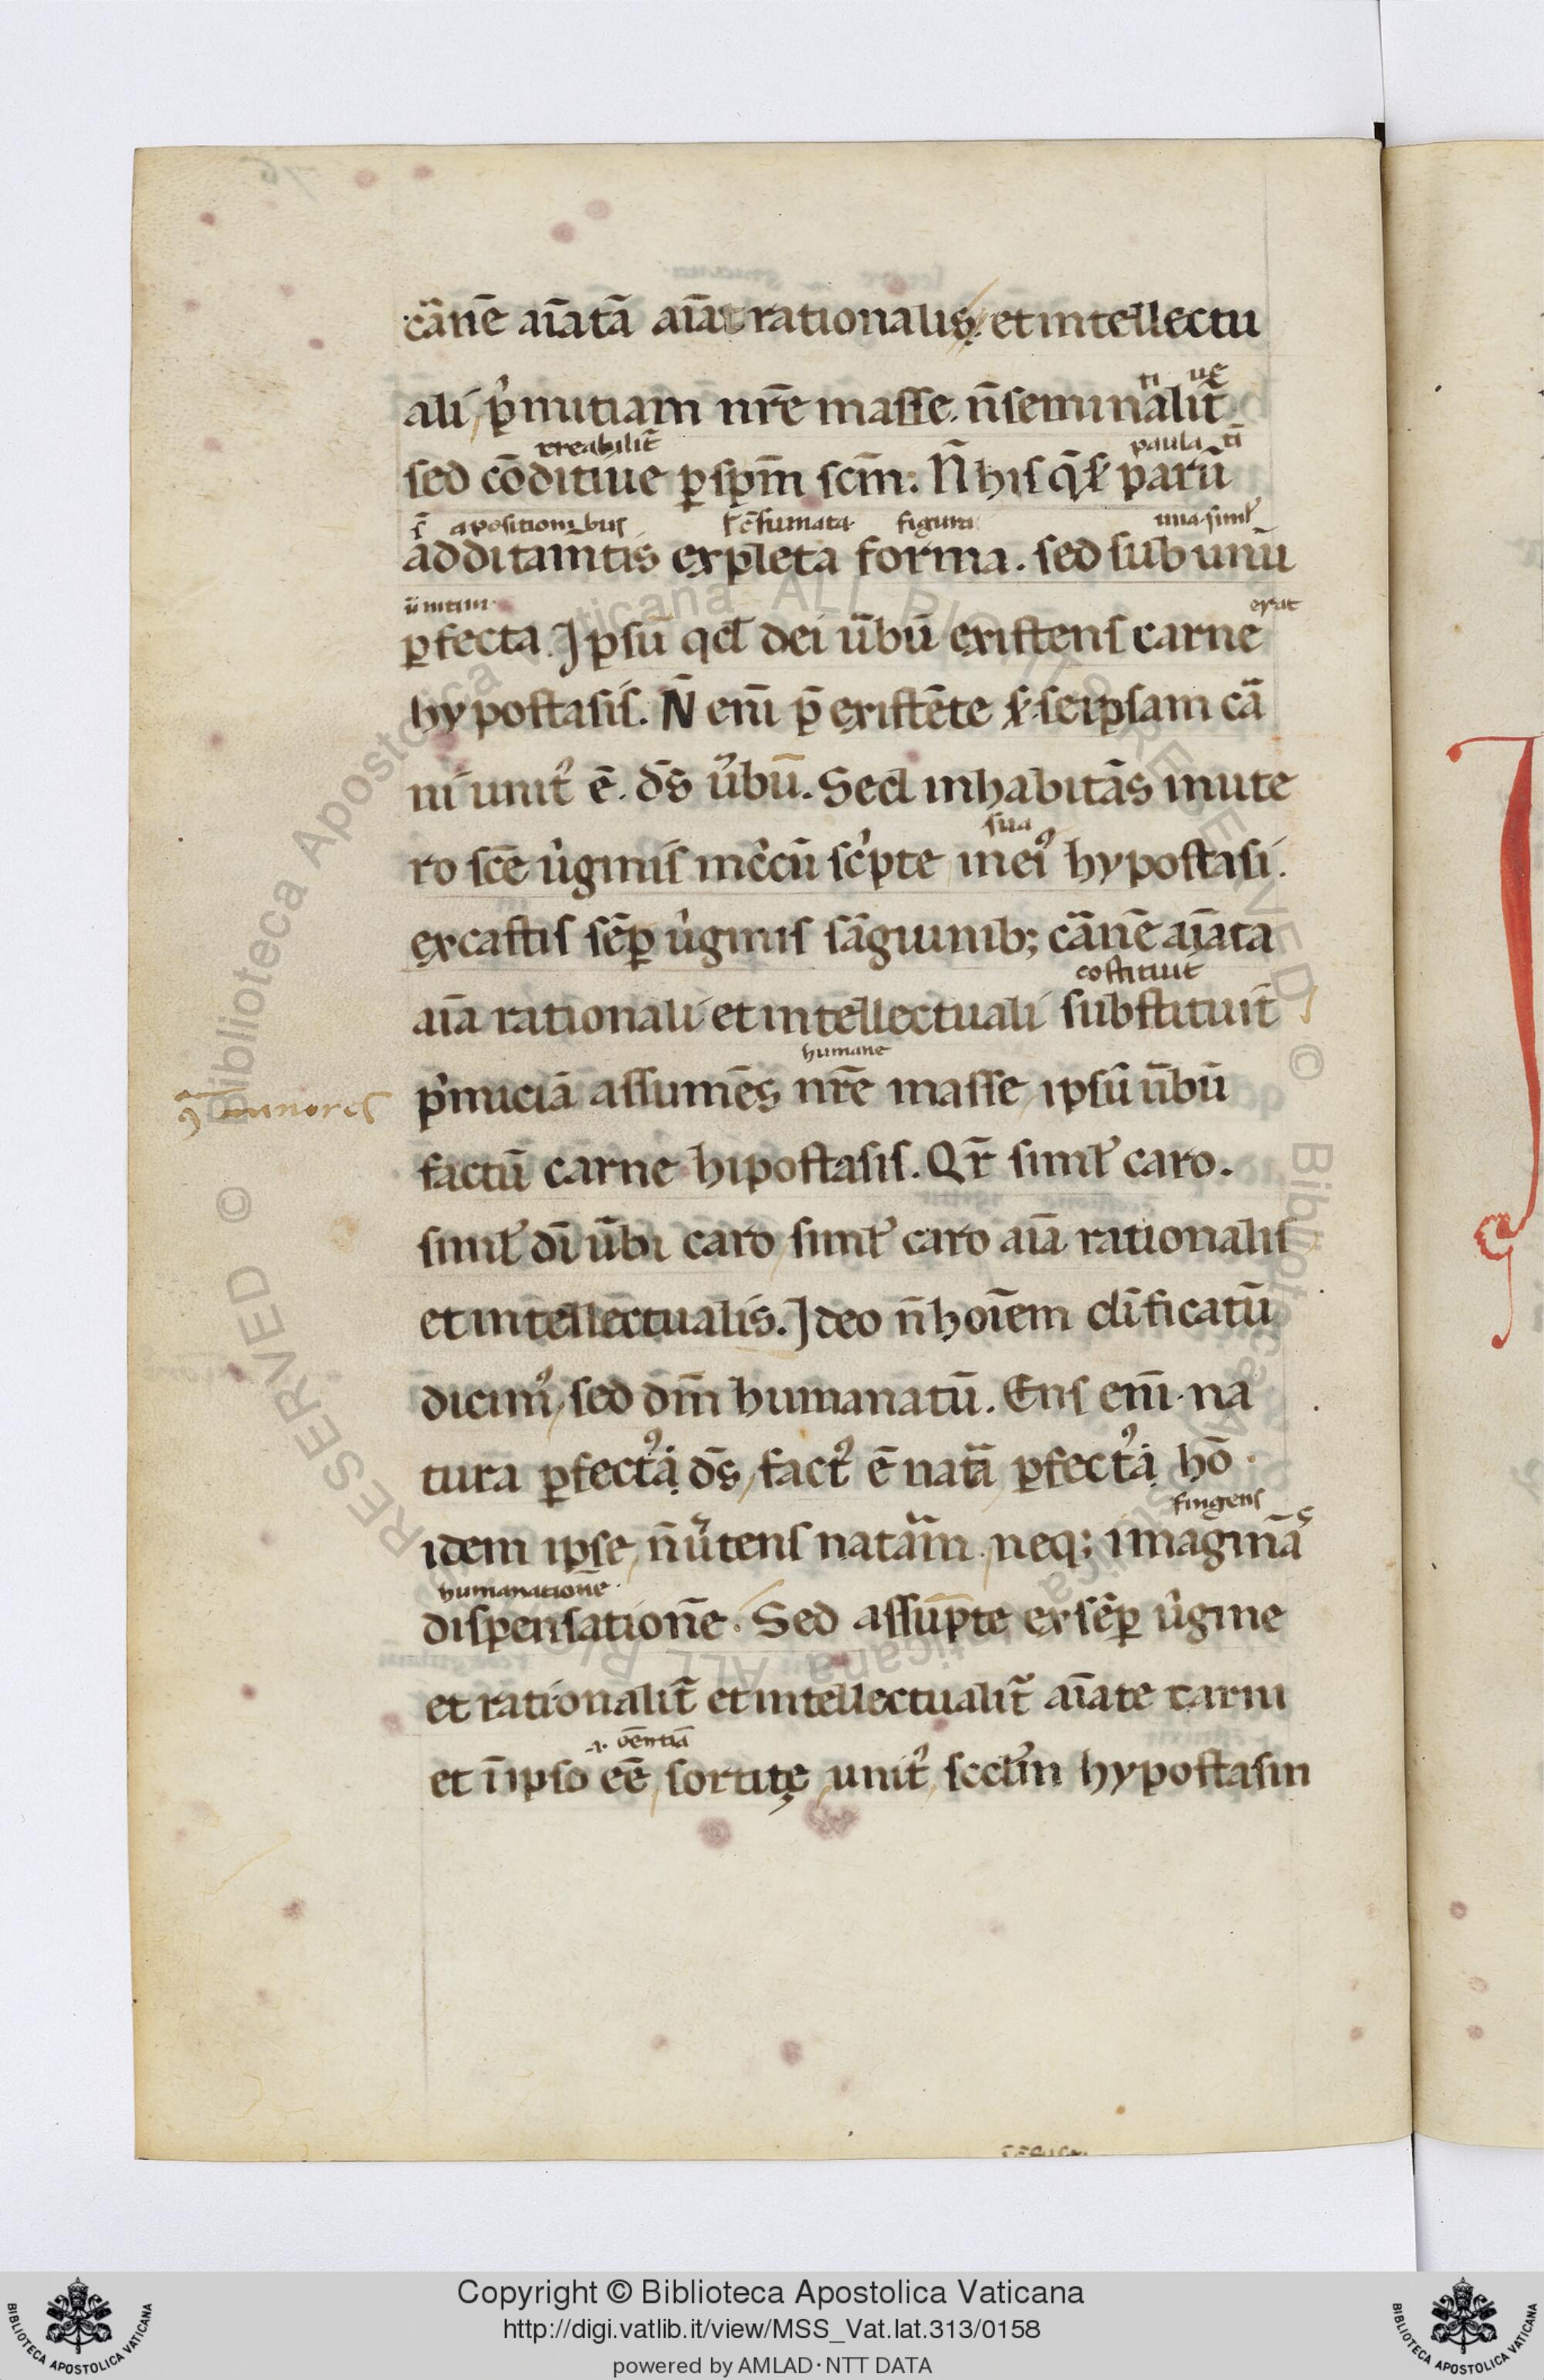 cãnē aīatã aīa rationalis et intellectu
ti ue
ali p̓mitiam nr̄e masse. n̄ seminalit̃
creabilit̃ paula tĩ
sed cōditiue ꝑ spm̄ scm̄: N̄ his q̄ парũ
apositionibus cō̄sumata figura una simľ
additam̄tis expleta forma. sed sub unū
erat
ꝑfecta. Ipsū qd dei ũbū existens carne
hypostasis. N̄ eni᷑ p̄existēte seipsam cã
ni unit᾿ ē. ds̄ ũbū. Sed inhabitãs in ute
sua
ro sce̅ ũginis in eiꝰ hypostasi.
ex castis sēꝑ ũginis sãguinib; cãnē aīata
costituit
aīa rationali et intellectuali substituit
humane
p̓miciã assumēs nr̄e masse ipsū ũbū
minores
factū carne hipostasis. Qr̄ simľ caro.
simľ dī ũbi caro simľ caro aīa rationalis
et intellectualis. Ideo n̄ hoīem dīficatū
dicimꝰ, sed dm̄ humanatū. Ens eni᷑ na
tura ꝑfectꝰ ds̄, factꝰ ē natã ꝑfectꝰ hō.
fingens
idem ipse, n̄ ũtens natãm. neq; imaginãs
humanationē
dispensationē. Sed assūpte ex sēꝑ ũgine
et rationalit̃ et intellectualit̃ aīate carni
et ī ipso eē, sortitę, unitꝰ, scdm̄ hypostasin
Copyright © Biblioteca Apostolica Vaticana
http://digi.vatlib.it/view/MSS_Vat.lat.313/0158
powered by AMLAD·NTT DATA
BIBLIOTECA APOSTOLICA VATICANA
BIBLIOTECA APOSTOLICA VATICANA